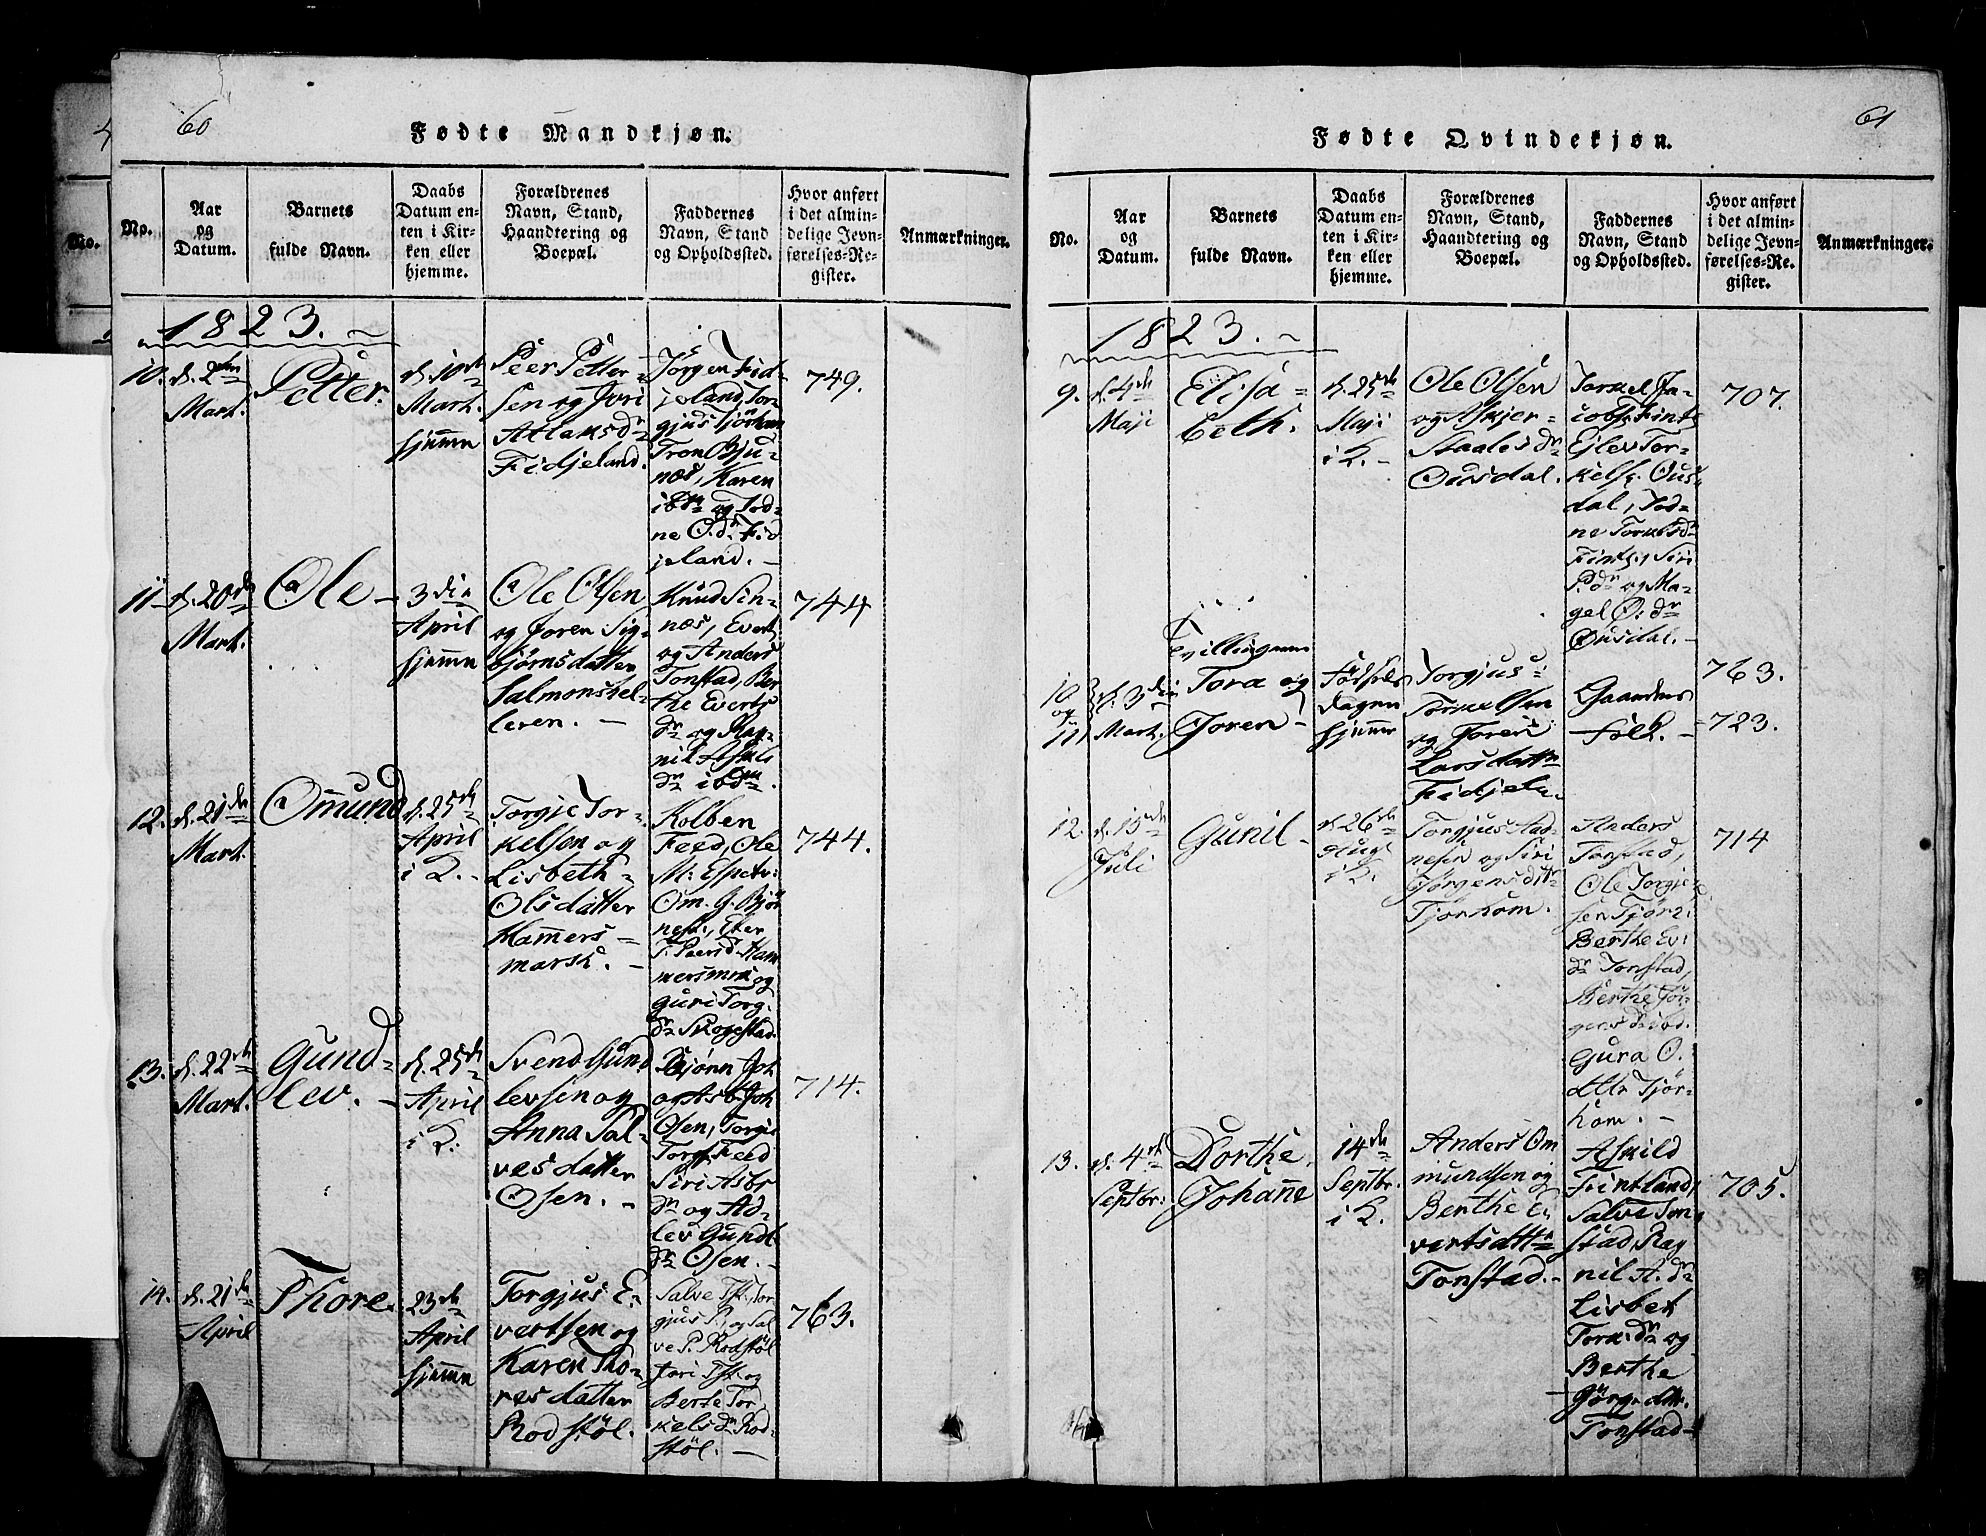 60
Fødte Mandkjøn.
No.
Aar
og
Datum.
Barnets
fulde Navn.
Daabs
Datum en-
ten i Kir-
ken eller
hjemme.
Forældrenes
Navn, Stand,
Haandtering og
Boepæl.
Faddernes
Navn, Stand
og Opholdssted.
Hvor anført
i det almin-
delige Jevn-
førelses-Re-
gister.
Anmærkninger.
1823.
10.
d. 2den
Mart.
Petter.
d. 10de
Mart.
hjemme
Peer Petter-
sen og Jori
Atlaksdr
Fidjeland.
Jørgen Fid-
jeland, Tor-
gjus Tjørhom
Tron Bju-
næs, Karen
ibdm og Tod-
ne O.dr Fid
jeland.
749.
11
d. 20de
Mart.
Ole
3die
April
hjemme
Ole Olsen
og Joren Sig-
bjørnsdatter
Salmonshel-
leren.
Knud Sin-
næs, Evert
og Anders
Tonstad, Ber
the Everts
dr og Rag-
nil Askils
dr ibdm.
744
12.
d. 21de
Mart.
Omund
d. 25de
April
i K.
Torgje Tor-
kelsen og
Lisbeth
Olsdatter
Hamers-
mark.
Kolben
Feed, Ole
M. Espetv:
Om. G. Bjør
nest:, Eter
Peersd. Ham
mersmrk og
Guri Torg.
dr Skogestad.
744.
13.
d. 22de
Mart.
Gund-
lev.
d. 25de
April
i K.
Svend Gund
levsen og
Anna Sal-
vesdatter
Osen.
Bjørn Joh
og Asb Joh
Osen, Torgje
Torgs. Feed
Siri Asbr
dr og Ad-
lev Gundl
dr Osen.
714.
14.
d. 21de
April
Thore.
23de
April
hjemme
Torgjus E-
vertsen og
Karen Tho-
resdatter
Rodstøl.
Salve Th. Tor
gjus P. og Sal
ve P. Rodstøl
Jori Th. og
Berte Tor
kelsdr Rod-
støl.
763.
61
Fødte Qvindekjøn.
No.
Aar
og
Datum.
Barnets
fulde Navn.
Daabs
Datum en-
ten i Kir-
ken eller
hjemme.
Forældrenes
Navn, Stand,
Haandtering og
Boepæl.
Faddernes
Navn, Stand
og Opholdssted.
Hvor anført
i det almin-
delige Jevn-
førelses-Re-
gister.
Anmærkninger.
1823.
9.
d. 4de
Maji
Elisa-
beth.
d. 25de
Maji
i K.
Ole Olsen
og Askjer
Staalesdr
Ousdal.
Torkel Ja-
cobs. Fintl
Ejlev Tor-
kels. Ous-
dal, Tod-
ne Torkelsdr
Fintl., Siri
P.dr og Ma-
gel O: dr
Ousdal.
707.
10
og
11
d. 3die
Mart.
Tvillingerne
Tora og
Joren
Fødsels
dagen
hjemme
Torgjus
Torkelsen
og Joren
Larsdattr
Fidjela.
Gaardens
Folk.
763.
723.
12.
d. 15de
Juli
Gunil
d. 26de
Aug.
i K.
Torgjus Aad-
nesen og Siri
Jørgensdtr
Tjørhom.
Anders
Tonstad,
Ole Torgje
sen Tjørh.
Berthe Ev:
dr Tonstad,
Berthe Jør-
gensd. ibd.
Gura O.
dttr Tjør-
hom.
714
13.
d. 4de
Septbr:
Dorthe
Johanne
14de
Septbr.
i K.
Anders Om
mundsen og
Berthe E-
vertsdattr
Tonstad.
Askild
Fintland,
Salve Ton-
stad, Rag
nil A. dr
Lisbet
Tork: dr og
Berthe
Jørg. dttr.
Tonstad
705.